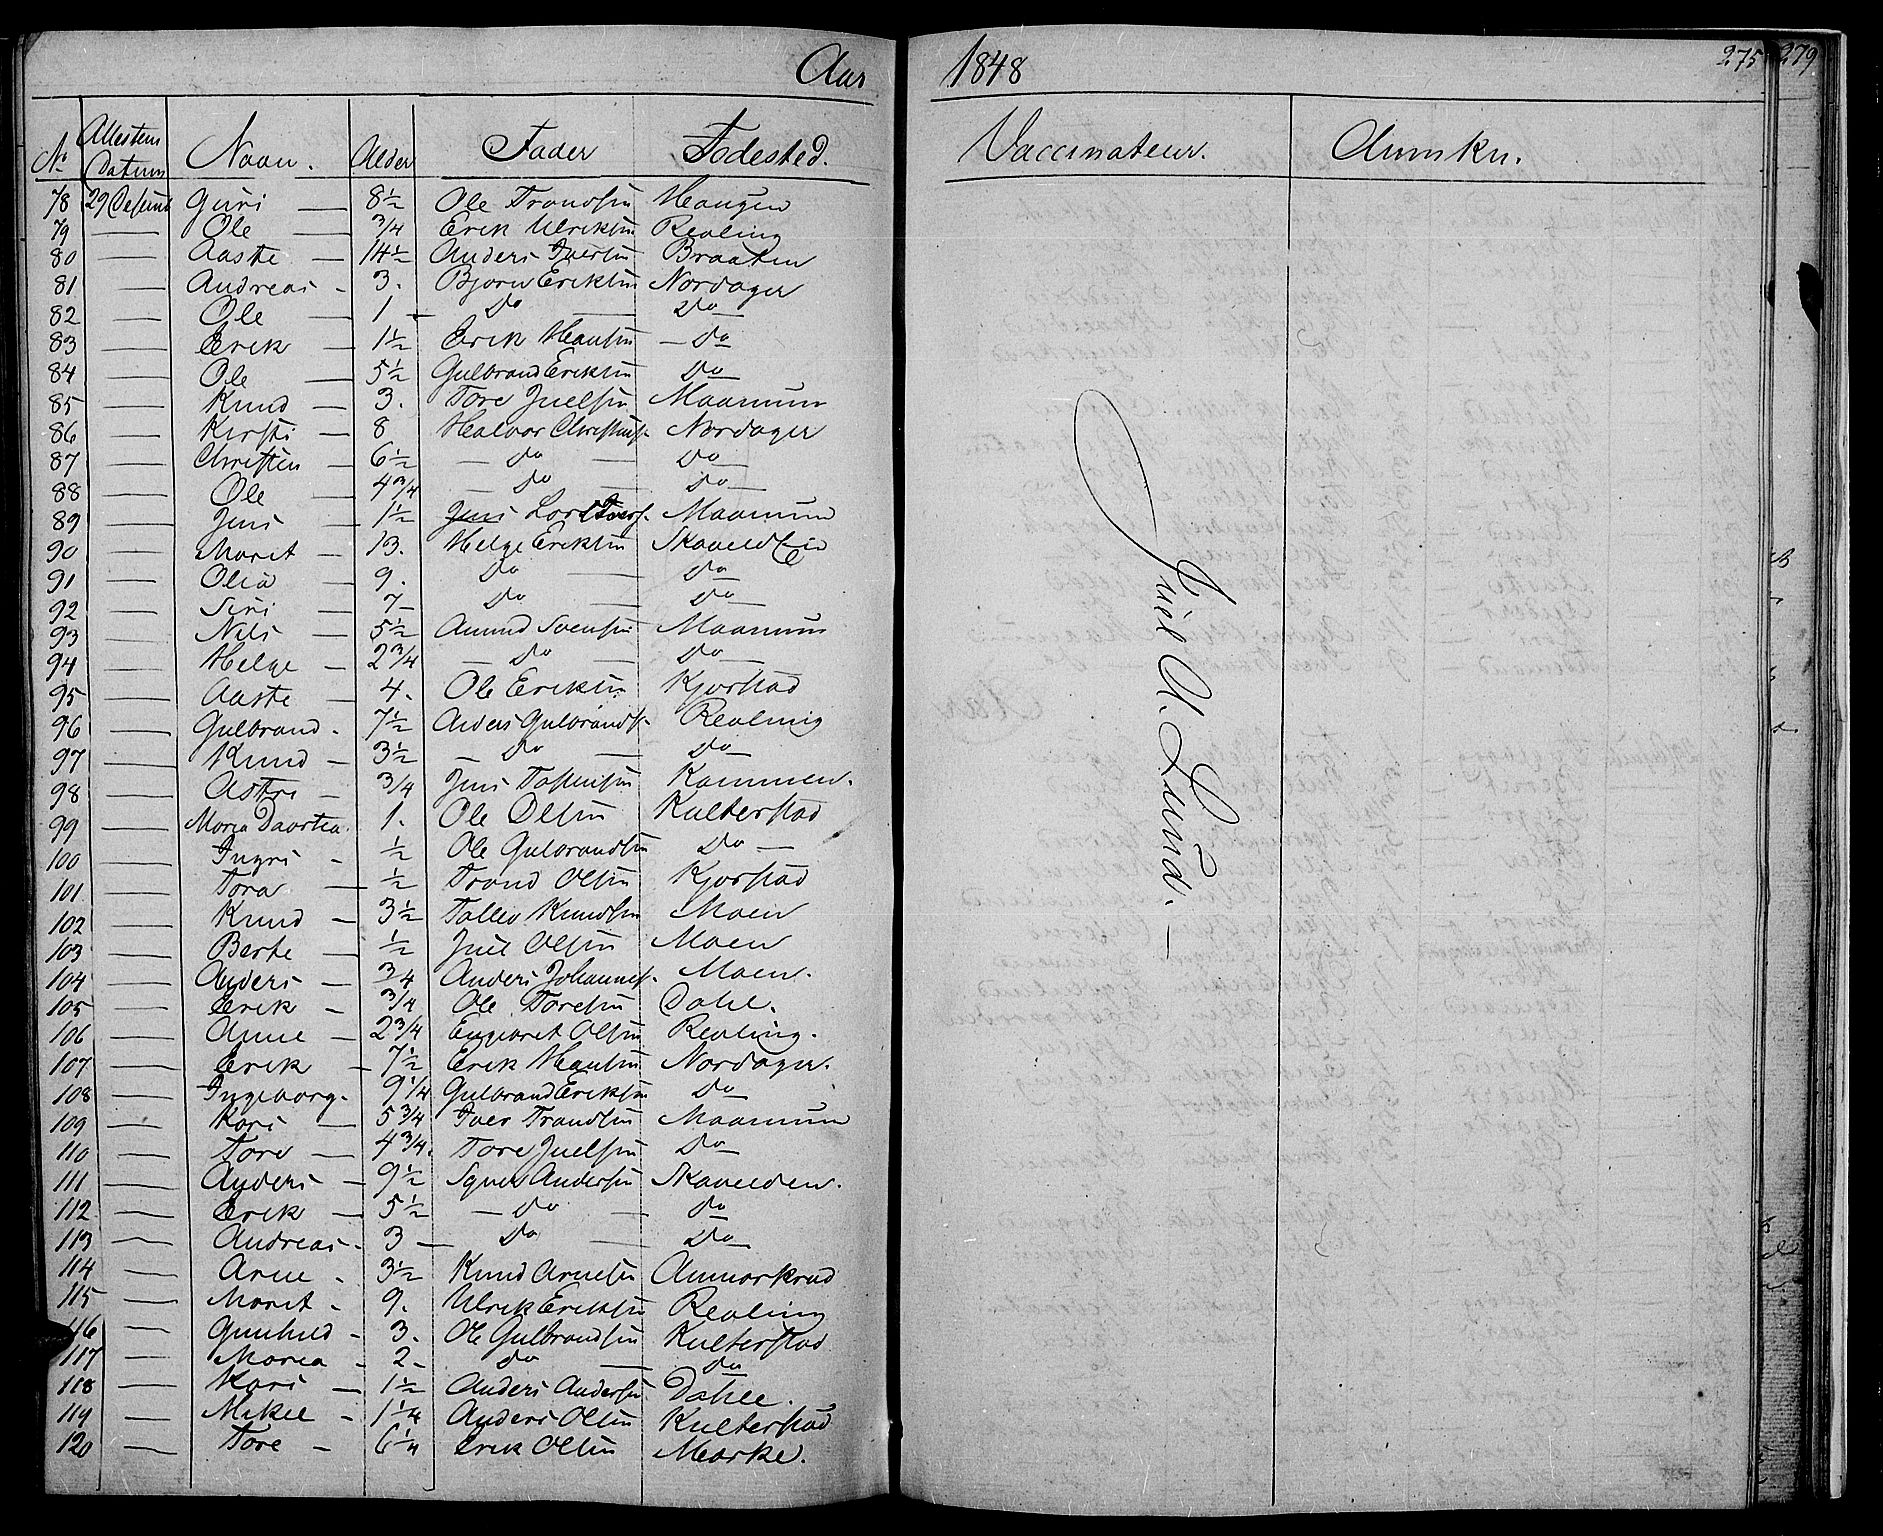 Aar 1848 275 279
No Attestens Datum Navn. Alder Fader Fødested. Vaccinateur. Anmkn.
78 29 Guri — 8½ Ole Trondsen Haugen
79 — Ole — 3/4 Erik Ulriksen Revling
80 — Aaste — 14½ Anders Iversen Braaten
81 — Andreas - 3. Bjørn Eriksen Nordager
82 — Ole — 1 - Do — Do —
83 — Erik — 1½ Erik Hansen — Do
84 — Ole — 5½ Gulbrand Eriksen Do —
85 — Knud — 3. Tore Juelsen Maamum
86 — Kirsti — 8 Halvor Christens. Nordager
87 — Christen — 6½ — Do — Do —
88 — Ole — 4 3/4 — Do — Do —
89 — Jens — 1½ Jens Maamum
90 — Marit — 13. Helge Eriksen
91 — Olia — 9. Do — Do —
92 — Siri — 7 — Do — Do —
93 — Nils — 5½ Amund Svensen Maamum
94 — Helge — 2 3/4 — Do — Do —
95 — Aaste — 4. Ole Eriksen Kjorstad
96 — Gulbrand - 7½ Anders Gulbrands. Revling
97 — Knud — 3½ — Do — Do —
98 — Astri — 3/4 Jens Tostensen Kammen.
99 — Maren Daartea. 1. Ole Olsen Kulterstad
100 — Ingri - ½ Ole Gulbrandsen Do —
101 — Tora — ½ Trond Olsen Kjorstad
102 — Knud — 3½ Tollev Knudsen Moen
103 — Berte — ½ Juel Olsen Moen
104 — Anders — 3/4 Anders Johannes. Moen.
105 — Erik - 3/4 Ole Toresen Dahl.
106 — Anne - 2 3/4 Engebret Olsen Revling.
107 — Erik — 7½ Erik Hansen Nordager.
108 — Ingeborg. 9 1/4 Gulbrand Eriksen Do —
109 — Kari — 5 3/4 Iver Trondsen Maamum
110 — Tore — 4 3/4. Tore Juelsen Do —
111 — Anders — 9½ Syver Andersen Skavelden.
112 — Erik — 5½ — Do — Do
113 — Andreas - 3 — Do — Do —
114 — Arne - 3½ Knud Arnesen
115 — Marit - 9. Ulrik Eriksen Revling
116 — Gunhild - 3. Ole Gulbrandsen Kulterstad
117 — Maria - 2 - Do — Do
118 — Kari — 1½ Anders Andersen Dahle.
119 — Mikel - 1 1/4 Anders Olsen Kulterstad
120 — Tore - 6 1/4 Erik Olsen Marke.
Juel A. Lund. —